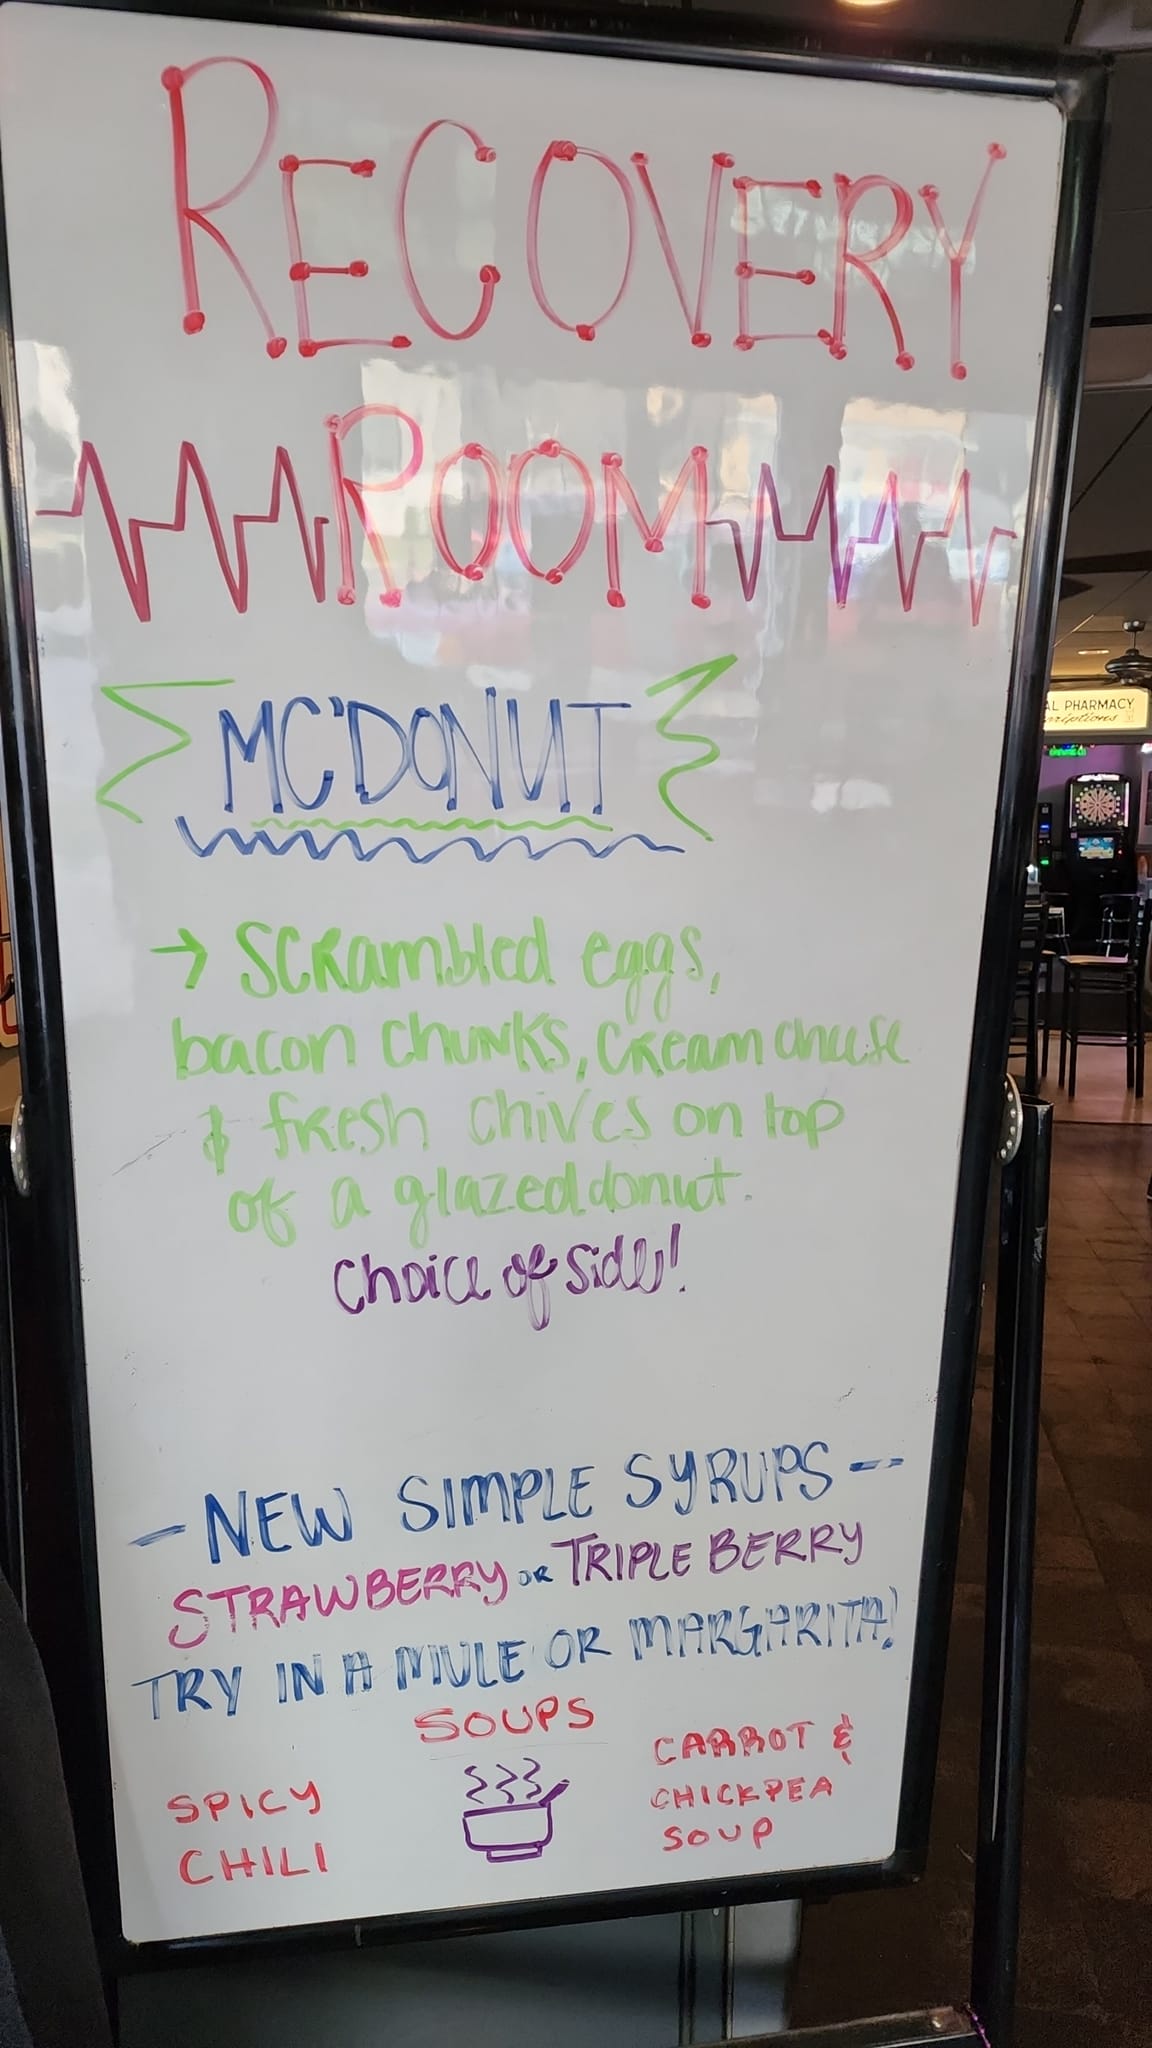 RECOVERY
ROOM
MC'DONUT
→ Scrambled eggs,
bacon chunks, cream cheese
& fresh chives on top
of a glazed donut.
Choice of side!
- NEW SIMPLE SYRUPS --
STRAWBERRY OR TRIPLE BERRY
TRY IN A MULE OR MARGARITA!
SOUPS
SPICY
CHILI
CARROT &
CHICKPEA
SOUP
AL PHARMACY